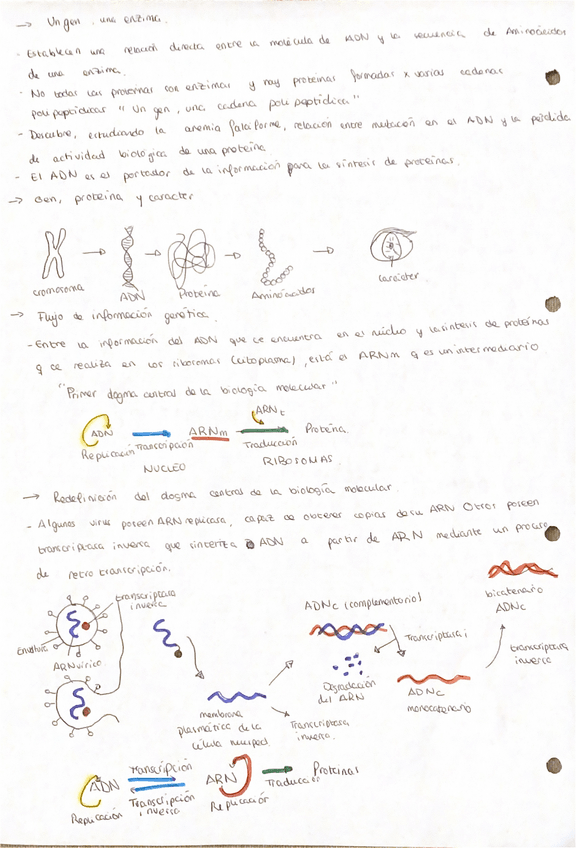 → Un gen, una enzima.
- Establecen una relación directa entre la molécula de ADN y la secuencia de Aminoácidos
de una enzima.
- No todas las proteínas son enzimas y hay proteínas formadas x varias cadenas
polipeptídicas "Un gen, una cadena polipeptídica"
- Descubre, estudiando la anemia falciforme, relación entre mutación en el ADN y la pérdida
de actividad biológica de una proteína
- El ADN es el portador de la información para la síntesis de proteínas.
→ Gen, proteína y caracter
cromosoma
ADN
Proteína
Aminoácidos
caracter
→ Flujo de información genética
- Entre la información del ADN que se encuentra en el núcleo y la síntesis de proteínas
q se realiza en los ribosomas (citoplasma), está el ARNm q es un intermediario
"Primer dogma central de la biología molecular"
ARNt
ADN → ARNm → Proteína
Replicación Transcripción Traducción
NUCLEO RIBOSOMAS
→ Redefinición del dogma central de la biología molecular.
- Algunos virus poseen ARN replicasa, capaz de obtener copias de su ARN Otros poseen
transcriptasa inversa que sintetiza ADN a partir de ARN mediante un proceso
de retro transcripción.
transcriptasa
inversa
Envoltura
ARN vírico
membrana
plasmática de la
célula huésped
Transcriptasa
inversa.
ADNc (complementario)
Degradación
del ARN
Transcriptasa i
ADNc
monocatenario
bicatenario
ADNc
transcriptasa
inversa
Transcripción
ADN ARN → Proteínas
Transcripción
inversa
Replicación Replicación Traducción